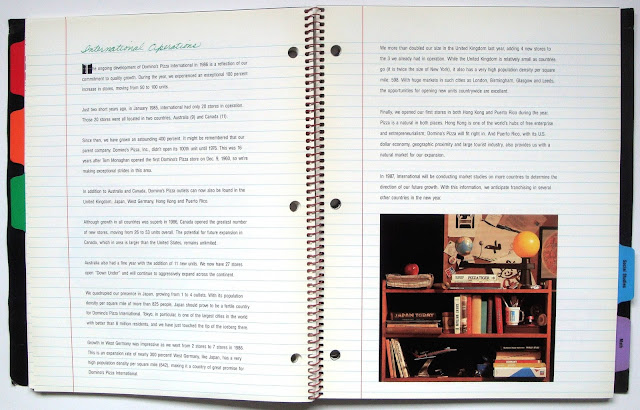 International Operations
The ongoing development of Domino's Pizza International in 1986 is a reflection of our
commitment to quality growth. During the year, we experienced an exceptional 100 percent
increase in stores, moving from 50 to 100 units.
Just two short years ago, in January 1985, International had only 20 stores in operation.
Those 20 stores were all located in two countries, Australia (9) and Canada (11).
Since then, we have grown an astounding 400 percent. It might be remembered that our
parent company, Domino's Pizza, Inc., didn't open its 100th unit until 1975. This was 16
years after Tom Monaghan opened the first Domino's Pizza store on Dec. 9, 1960, so we're
making exceptional strides in this area.
In addition to Australia and Canada, Domino's Pizza outlets can now also be found in the
United Kingdom, Japan, West Germany, Hong Kong and Puerto Rico.
Although growth in all countries was superb in 1986, Canada opened the greatest number
of new stores, moving from 26 to 53 units overall. The potential for future expansion in
Canada, which in area is larger than the United States, remains unlimited.
Australia also had a fine year with the addition of 11 new units. We now have 27 stores
open "Down Under" and will continue to aggressively expand across the continent.
We quadrupled our presence in Japan, growing from 1 to 4 outlets. With its population
density per square mile of more than 825 people, Japan should prove to be a fertile country
for Domino's Pizza International. Tokyo, in particular, is one of the largest cities in the world
with better than 8 million residents, and we have just touched the tip of the iceberg there.
Growth in West Germany was impressive as we went from 2 stores to 7 stores in 1986.
This is an expansion rate of nearly 300 percent! West Germany, like Japan, has a very
high population density per square mile (642), making it a country of great promise for
Domino's Pizza International.
We more than doubled our size in the United Kingdom last year, adding 4 new stores to
the 3 we already had in operation. While the United Kingdom is relatively small as countries
go (it is twice the size of New York), it also has a very high population density per square
mile: 598. With huge markets in such cities as London, Birmingham, Glasgow and Leeds,
the opportunities for opening new units countrywide are excellent.
Finally, we opened our first stores in both Hong Kong and Puerto Rico during the year.
Pizza is a natural in both places. Hong Kong is one of the world's hubs of free enterprise
and entrepreneurialism; Domino's Pizza will fit right in. And Puerto Rico, with its U.S.
dollar economy, geographic proximity and large tourist industry, also provides us with a
natural market for our expansion.
In 1987, International will be conducting market studies on more countries to determine the
direction of our future growth. With this information, we anticipate franchising in several
other countries in the new year.
JAPAN TODAY
Social Studies
Math